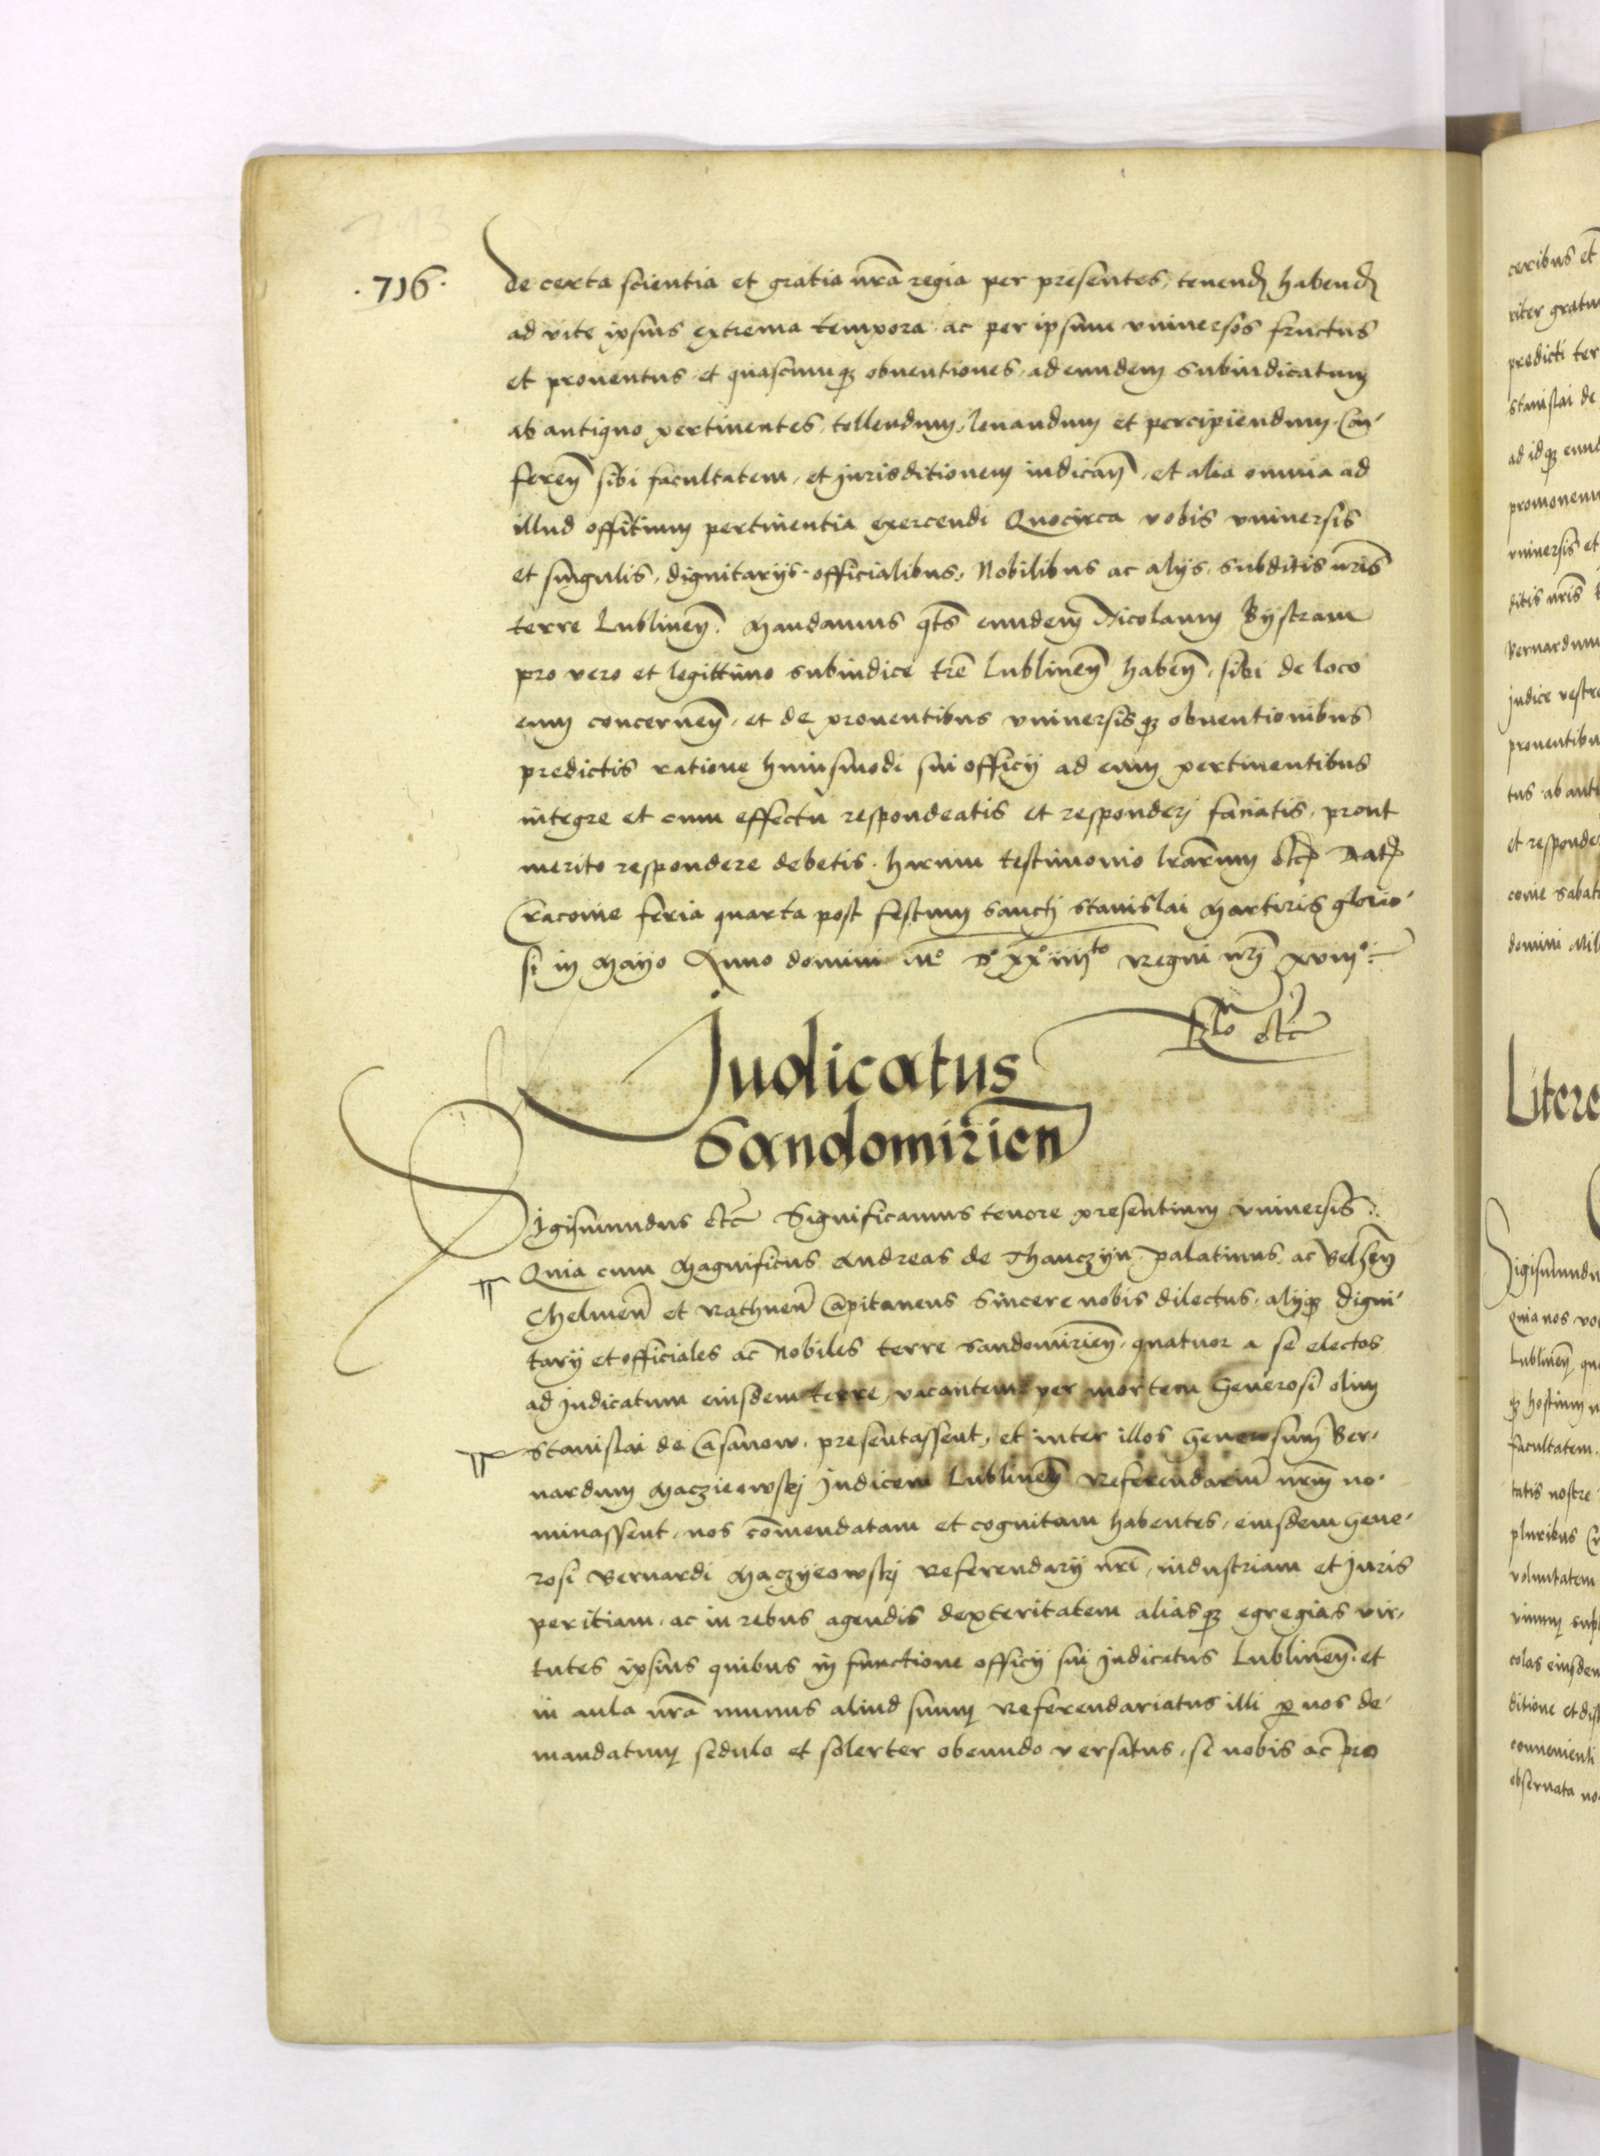 713
.716.
de certa scientia et gratia nr̃a regia per presentes, tenend̃ habend̃
ad vite ipsius extrema tempora ac per ipsum vniuersos fructus
et prouentus et quascunq; obuentiones, ad eundem Subiudicatum
ab antiquo pertinentes, tollendum, leuandum et percipiendum. Con-
feren̄ sibi facultatem, et jurisditionem iudican̄, et alia omnia ad
illud offitium pertinentia exercendi Quocirca vobis vniuersis
et singulis, dignitarijs. officialibus, Nobilibus ac alijs, subditis nr̃is
terre Lublinen̄. Mandamus qts̄ eundem Nicolaum Bijstram
pro vero et legittimo subiudice tr̃e Lublinen̄ haben̄, sibi de loco
eum concernen̄, et de prouentibus vniuersisq; obuentionibus
predictis ratione huiusmodi sui officij ad eum pertinentibus
integre et cum effectu respondeatis et responderj faciatis, prout
merito respondere debetis. harum testimonio lr̃arum etc̃ Dat̃
Cracouie feria quarta post festum Sanctj Stanislai Martiris glorio-
si in Mayo Anno domini Mº Dº xxº iiijto Regni nr̃j xviijº.
Rlo etc̃
Judicatus
Sandomirien̄
Sigismundus etc̃ Significamus tenore presentium vniuersis.
Quia cum Magnificus Andreas de Thanczyn, palatinus, ac Belzen̄
Chelmen̄ et Rathnen̄ Capitaneus Sincere nobis dilectus, alijq; digni-
tarij et officiales ac Nobiles terre Sandomirien̄, quatuor a se electos
ad judicatum eiusdem terre, vacantem per mortem Generosi olim
Stanislai de Casanow, presentassent, et inter illos Generosum Ber-
nardum Maczieowskj Judicem Lublinen̄ Referendariū nr̃m no-
minassent, nos com̄endatam et cognitam habentes, eiusdem Gene-
rosi Bernardi Maczyeowskj Referendarij nr̃i, industriam et Juris
peritiam, ac in rebus agendis dexteritatem aliasq; egregias vir-
tutes ipsius quibus in functione officij sui Judicatus Lublinen̄, et
in aula nr̃a munus aliud suum Referendariatus illi p nos de-
mandatum sedulo et solerter obeundo versatus, se nobis ac pro
ceribus et
riter gratu
predicti ter
Stanislai de
ad idq; eund
promouemu
vniuersis et
ditis nr̃is
Bernardum
Judice vestre
prouentibu
tus ab anti
et responde
couie Sabat
domini Mil
Litere
Sigismundu
Quia nos vo
Lublinen̄ qu
q; hostium
facultatem.
tatis nostre
pluribus
voluntatem
uium sub
colas eiusdem
ditione et dis
conuenienti
obseruata no